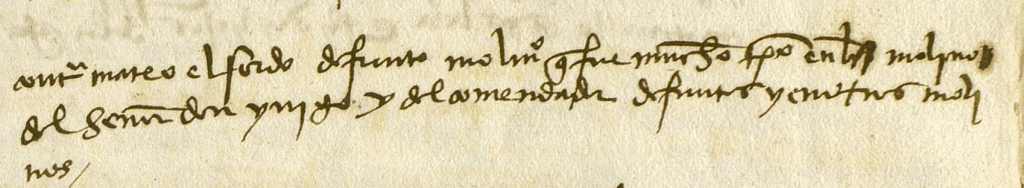 contra mateo el sordo defunto molinº q fue mucho tpo en los molinos
del señor don ynigo y del comendador defuntos y en otros moli
nos /